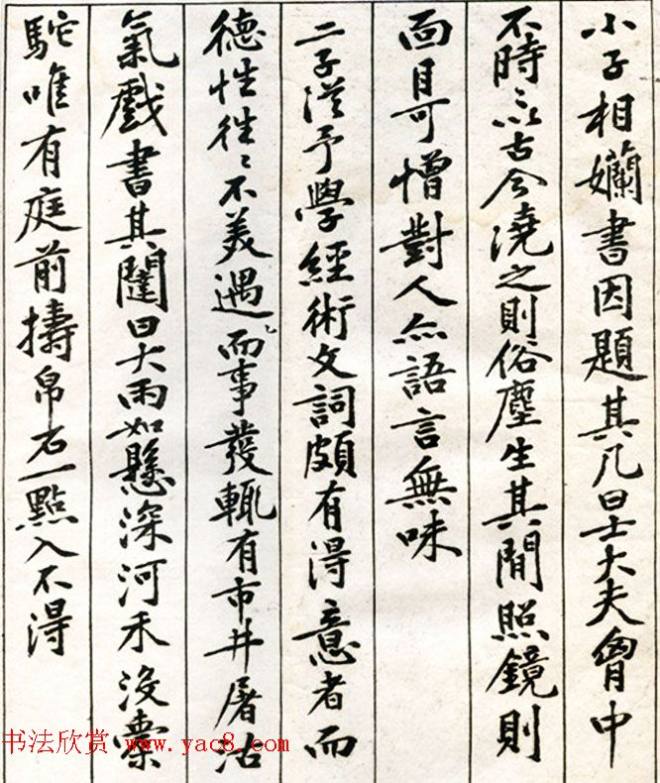 小子相嬾書因題其几曰士大夫胷中
不時以古今澆之則俗塵生其間照鏡則
面目可憎對人亦語言無味
二子從予學經術文詞頗有得意者而
德性往〻不美遇而事發輒有市井屠沽
氣戲書其闥曰大雨如懸深河禾没橐
駝唯有庭前擣帛石一點入不得
书法欣赏 www.yac8.com